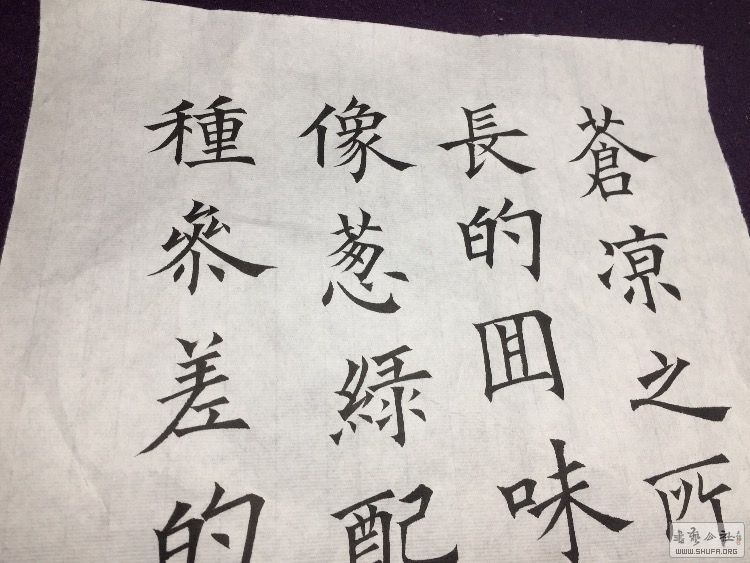 蒼凉之所
長的囬味
像葱綠配
種叅差的
书艺公社
WWW.SHUFA.ORG